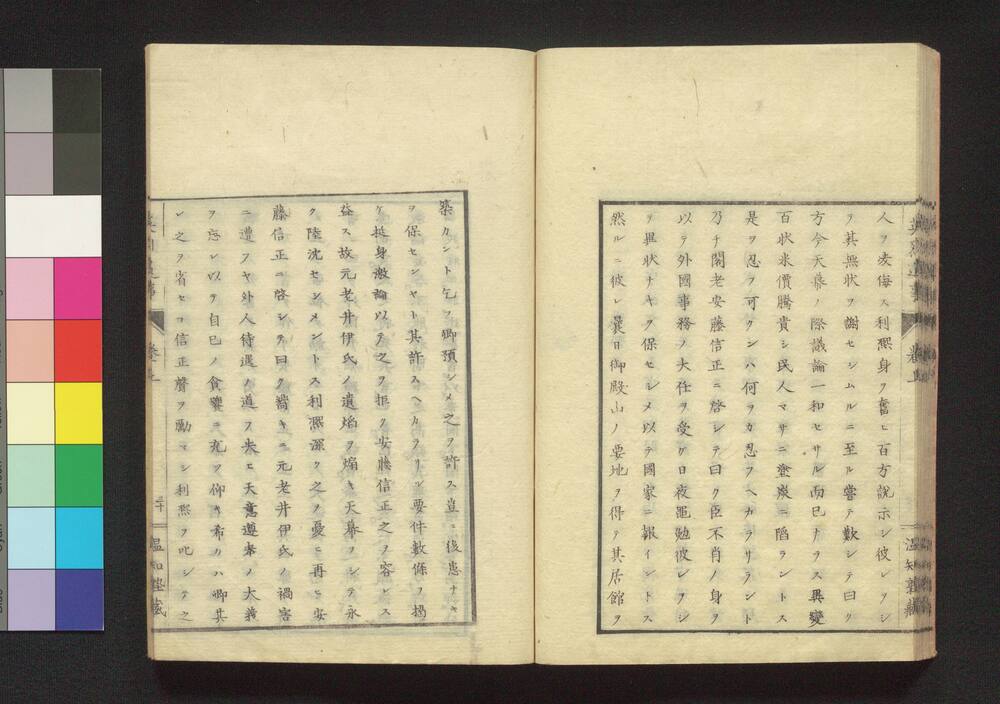 人ヲ凌侮ス利熈身ヲ奮ヒ百方説示シ彼レヲシ
ヲ其無状ヲ謝セシムルニ至ル嘗テ歎シテ曰ク
方今天幕ノ際議論一和セサル而已ナラス異變
百状米價騰貴シ民人マサニ塗炭ニ陷ラントス
是ヲ忍フ可クンハ何ヲカ忍フヘカラサラント
乃チ閣老安藤信正ニ啓シテ曰ク臣不肖ノ身ヲ
以テ外國事務ノ大任ヲ受ケ日夜黽勉彼レヲシ
テ異状ナキヲ保セシメ以テ國家ニ報インドス
然ルニ彼レ曩日御殿山ノ要地ヲ得テ其居館ヲ
築カント乞フ卿預シメ之ヲ許ス豈ニ後患ナキ
ヲ保センヤト其許スヘカラサル要件数條ヲ掲
ケ挺身激論以テ之ヲ拒ク安藤信正之ヲ容レス
益ス故元老井伊氏ノ遺焔ヲ煽キ天幕ヲシテ永
ク陸沈セシメントス利熈深ク之ヲ憂ヒ再ヒ安
藤信正ニ啓シテ曰ク嚮キニ元老井伊氏ノ禍害
ニ遭フヤ外人待遇ノ道ヲ失ヒ天意遵奉ノ大義
ヲ忘レ以テ自己ノ貪饕ニ充ツ仰キ希クハ卿其
レ之ヲ省セヨ信正聲ヲ勵マシ利熈ヲ叱シテ之
巻上
二十
温知塾蔵